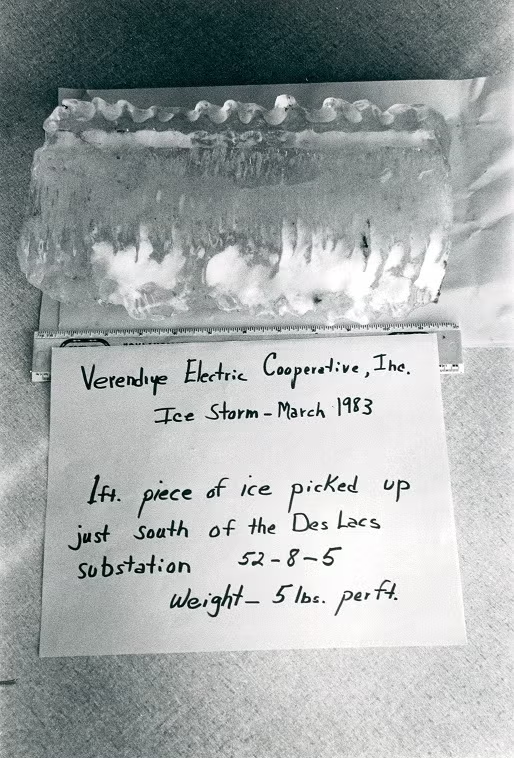 Verendrye Electric Cooperative, Inc.
Ice Storm - March 1983
1 ft. piece of ice picked up
just south of the Des Lacs
substation 52-8-5
Weight - 5 lbs. per ft.